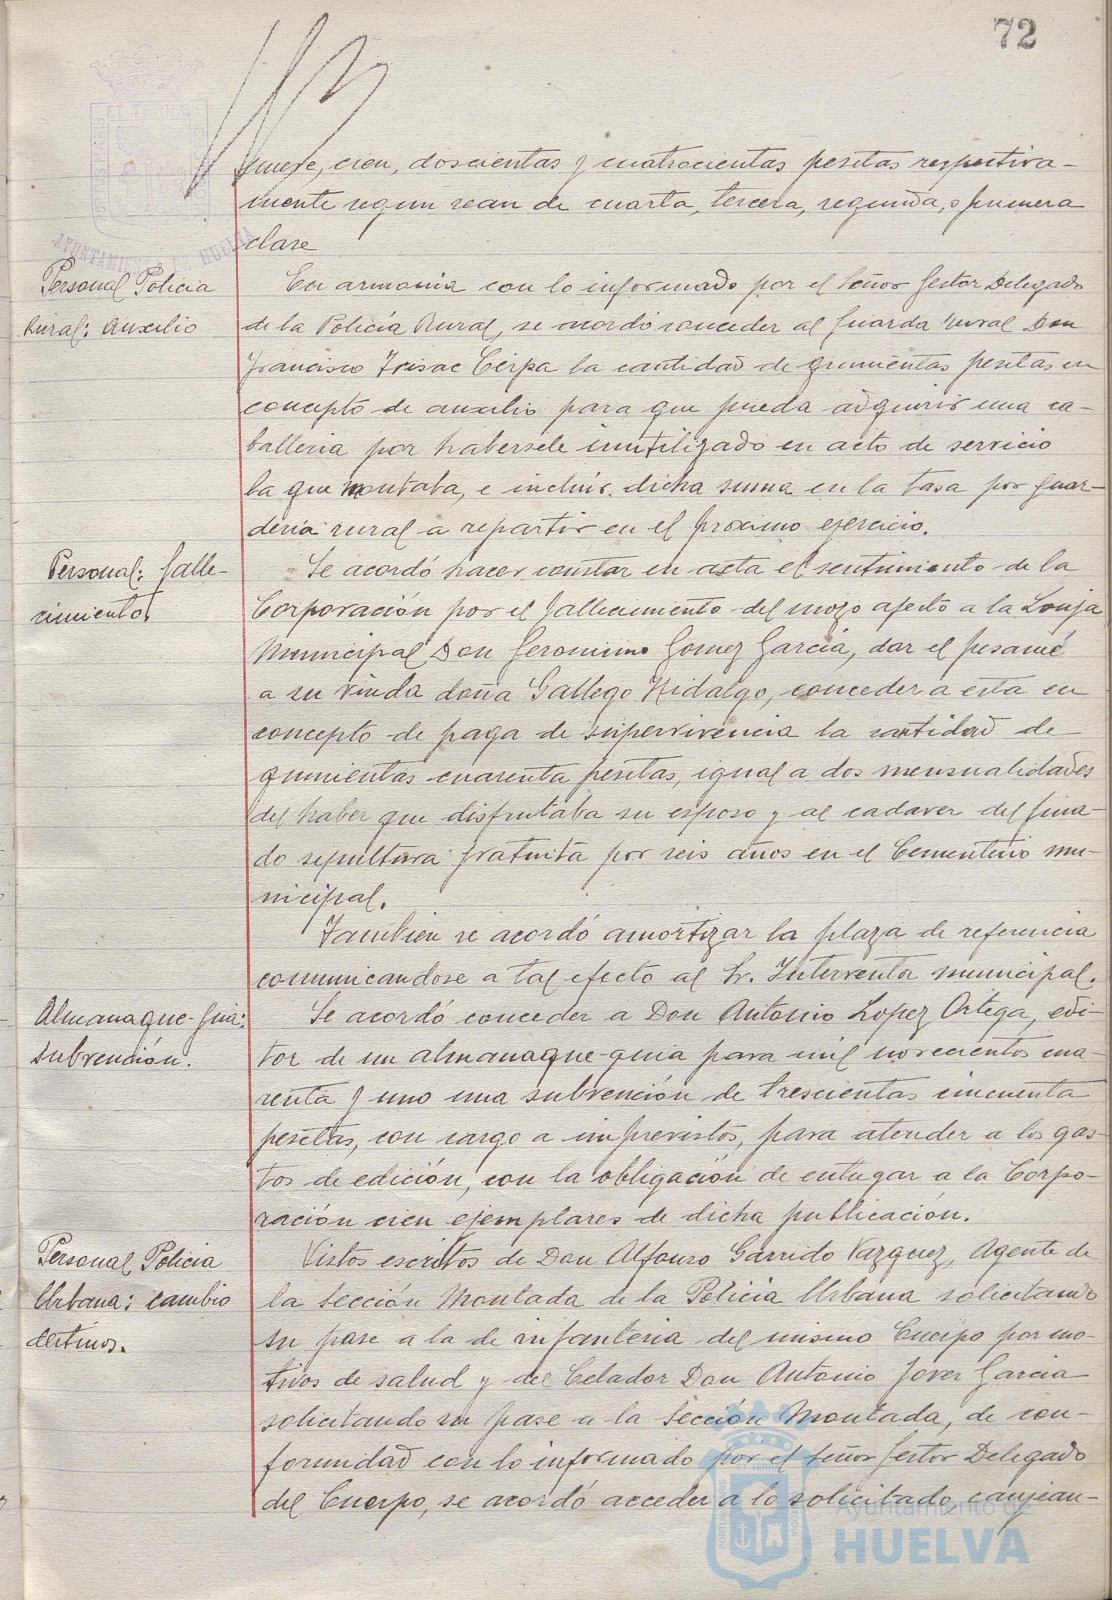 72
cien, doscientas y cuatrocientas pesetas respectiva-
mente segun sean de cuarta, tercera, segunda, o primera
clase
Personal Policia
Rural: Auxilio
En armonia con lo informado por el Señor Gestor Delegado
de la Policía Rural, se acordó conceder al Guarda rural Don
Francisco Cerpa la cantidad de quinientas pesetas en
concepto de auxilio para que pueda adquirir una ca-
balleria por habersele inutilizado en acto de servicio
la que montaba, e incluir dicha suma en la tasa por guar-
deria rural a repartir en el proximo ejercicio.
Personal: falle-
cimiento.
Se acordó hacer constar en acta el sentimiento de la
Corporación por el fallecimiento del mozo afecto a la Lonja
Municipal Don Geronimo Gomez Garcia, dar el pesamé
a su viuda doña Gallego Hidalgo, conceder a esta en
concepto de paga de supervivencia la cantidad de
quinientas cuarenta pesetas, igual a dos mensualidades
del haber que disfrutaba su esposo y al cadaver del fina-
do sepultura gratuita por seis años en el Cementerio mu-
nicipal.
Tambien se acordó amortizar la plaza de referencia
comunicandose a tal efecto al Sr. Interventor municipal.
Almanaque-guia:
subvención.
Se acordó conceder a Don Antonio Lopez Ortega, edi-
tor de un almanaque-guia para mil novecientos cua-
renta y uno una subvención de trescientas cincuenta
pesetas, con cargo a imprevistos, para atender a los gas-
tos de edición, con la obligación de entregar a la Corpo-
ración cien ejemplares de dicha publicación.
Personal Policia
Urbana: cambio
destinos.
Vistos escritos de Don Alfonso Garrido Vazquez, Agente de
la Sección Montada de la Policia Urbana solicitando
su pase a la de infanteria del mismo Cuerpo por mo-
tivos de salud y del Celador Don Antonio Jover Garcia
solicitando su pase a la Sección Montada, de con-
formidad con lo informado por el Señor Gestor Delegado
del Cuerpo, se acordó acceder a lo solicitado, canjean-
AYUNTAMIENTO DE HUELVA
Ayuntamiento de
HUELVA